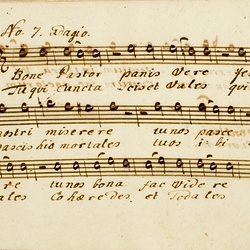 No. 7. Adagio.
Bone Pastor panis Vere Je
Tu qui cuncta scis et Vales qui
nostri miserere tu nos pasce
pascis hic mortales tuos i bi
re tu nos bona fac Vide re
ales Cohæredes et Soda les